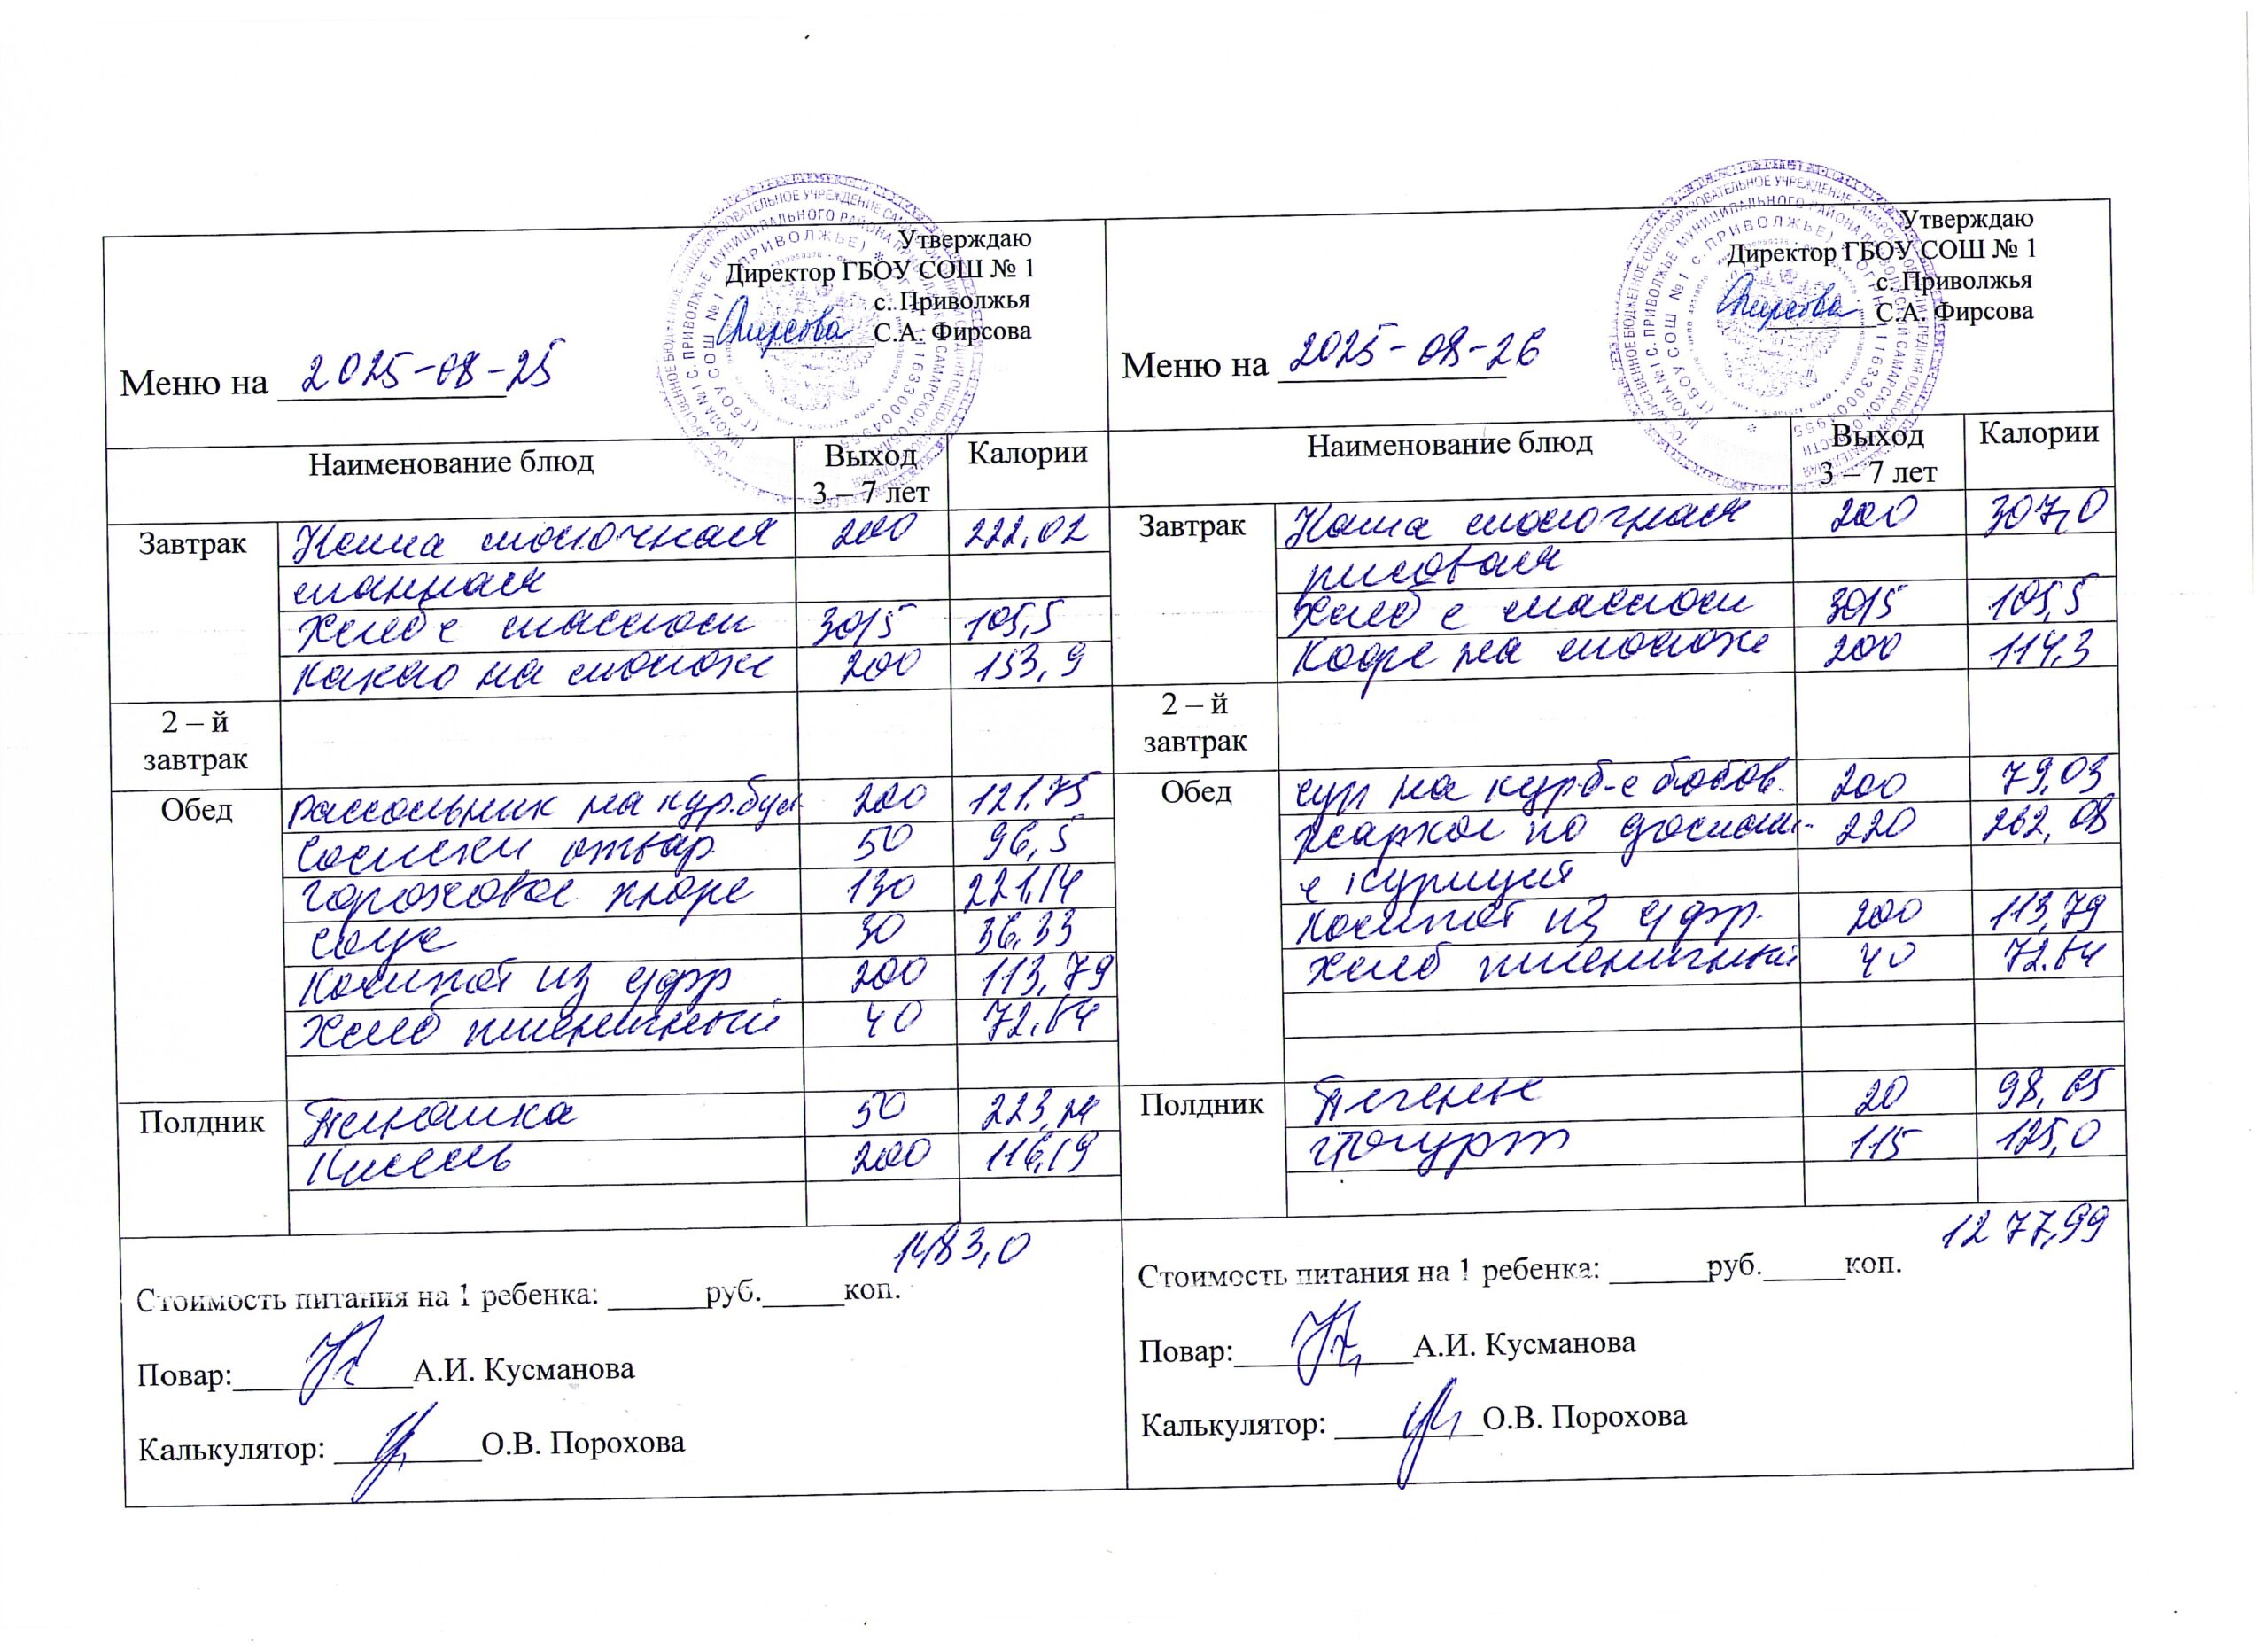 Утверждаю
Директор ГБОУ СОШ № 1
с. Приволжья
С.А. Фирсова
Меню на 2025-08-25
Наименование блюд Выход 3 – 7 лет Калории
Завтрак Каша молочная 200 222,02
манная
Хлеб с маслом 30/5 105,5
Какао на молоке 200 153,9
2 – й завтрак
Обед Рассольник на кур.бул. 200 121.75
Сосиски отвар. 50 96,5
Гороховое пюре 130 221,14
Соус 30 36,33
Компот из с/фр 200 113,79
Хлеб пшеничный 40 72.64
Полдник 50
Кисель 200 116,19
1483,0
Стоимость питания на 1 ребенка: ______руб._____коп.
Повар:___________А.И. Кусманова
Калькулятор: _________О.В. Порохова
Утверждаю
Директор ГБОУ СОШ № 1
с. Приволжья
С.А. Фирсова
Меню на 2025-08-26
Наименование блюд Выход 3 – 7 лет Калории
Завтрак Каша молочная 200 307,0
рисовая
Хлеб с маслом 30/5 105,5
Кофе на молоке 200 114,3
2 – й завтрак
Обед суп на кур б-е бобов. 200 79,03
Жаркое по домашн- 220 262,08
с курицей
Компот из с/фр. 200 113,79
Хлеб пшеничный 40 72.64
Полдник Печенье 20 98,65
Йогурт 115 125,0
1277,99
Стоимость питания на 1 ребенка: ______руб._____коп.
Повар:___________А.И. Кусманова
Калькулятор: _________О.В. Порохова